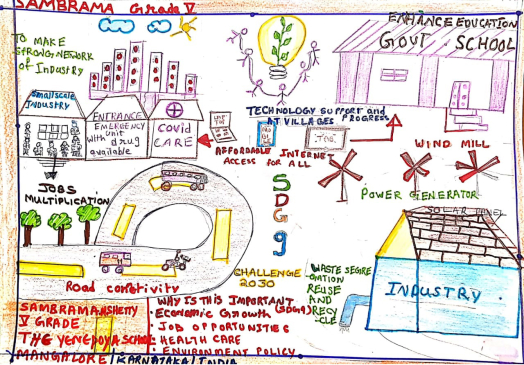 SAMBRAMA Grade V
ENHANCE EDUCATION
GOVT. SCHOOL
TO MAKE
STRONG NETWORK
of Industry
Smallscale
INDUSTRY
ENTRANCE
EMERGENCY
UNIT
with drug
available
Covid
CARE
TECHNOLOGY SUPPORT and
AT VILLAGES PROGRESS
AFFORDABLE INTERNET
ACCESS FOR ALL
WIND MILL
JOBS
MULTIPLICATION
POWER GENERATOR
SOLAR PANEL
SDG 9
CHALLENGE
2030
WASTE SEGRE
GATION
REUSE
AND
RECY
CLE
INDUSTRY
Road conetivity
WHY IS THIS IMPORTANT
(SDG9)
• Economic Growth
• JOB OPPORTUNITIES
• HEALTH CARE
• ENVIRONMENT POLICY
SAMBRAMA.N.SHETTY
V GRADE
THE YENEPOYA SCHOOL
MANGALORE/KARNATAKA/INDIA